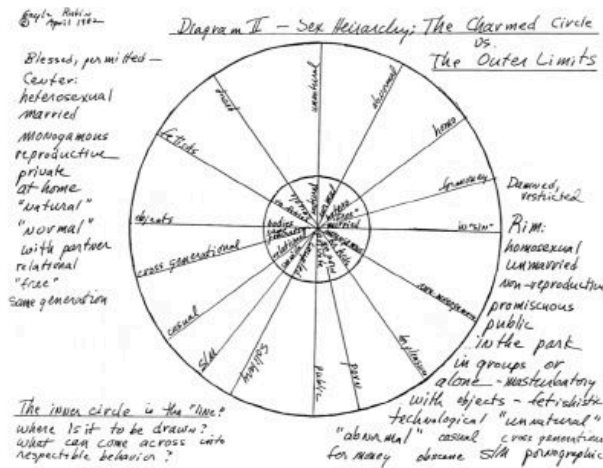 Gayle Rubin
© April 1982
Diagram II — Sex Heirarchy: The Charmed Circle
vs.
The Outer Limits
Blessed, permitted —
Center:
heterosexual
married
monogamous
reproductive
private
at home
"natural"
"normal"
with partner
relational
"free"
same generation
unnatural
abnormal
homo
for money
in "sin"
non-monogamous
public
porn
solitary
S/M
casual
cross generational
objects
fetish
bodies
relational
married
Damned,
restricted
Rim:
homosexual
unmarried
non-reproductive
promiscuous
public
in the park
in groups or
alone - masturbatory
with objects - fetishistic
technological "unnatural"
"abnormal" casual cross generational
for money obscene S/M pornographic
The inner circle is the "line."
Where is it to be drawn?
What can come across into
respectible behavior?